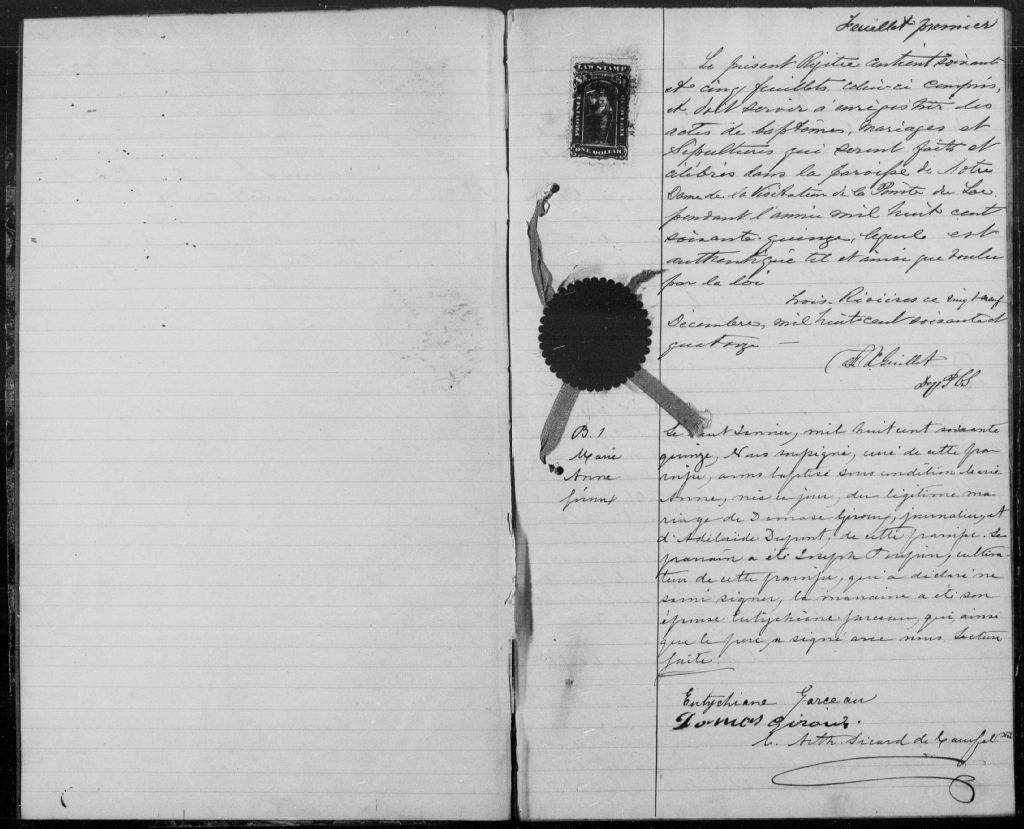 Feuillet premier
LAW STAMP
PROVINCE
ONE DOLLAR
Le présent Régitre contient soixante
et cinq feuillets celui-ci compris,
et doit servir à enrégistrer les
actes de baptêmes, mariages et
Sépultures qui seront faits et
célébrés dans la paroisse de Notre
Dame de la Visitation de la Pointe du Lac
pendant l'année mil huit cent
soixante-quinze, lequel est
authentiqué tel et ainsi que voulu
par la loi
Trois-Rivières ce vingt neuf
Décembre, mil huit cent soixante et
quatorze —
Guillet
Dep P C S
B. 1
Marie
Anne
Giroux
Le huit Janvier, mil huit cent soixante
quinze, Nous soussigné, curé de cette pa-
roisse, avons baptisé sous condition Marie
Anne, née ce jour, du légitime ma-
riage de Damase Giroux, journalier, et
d'Adélaïde Dupont, de cette paroisse. Le
parrain a été Joseph cultiva-
teur de cette paroisse, qui a déclaré ne
savoir signer, la marraine a été son
épouse Eutychiane Garceau, qui, ainsi
que le père, a signé avec nous. Lecture
faite.
Eutychiane Garceau
Domas Giroux.
L. Arth. Sicard de Carufel Ptre